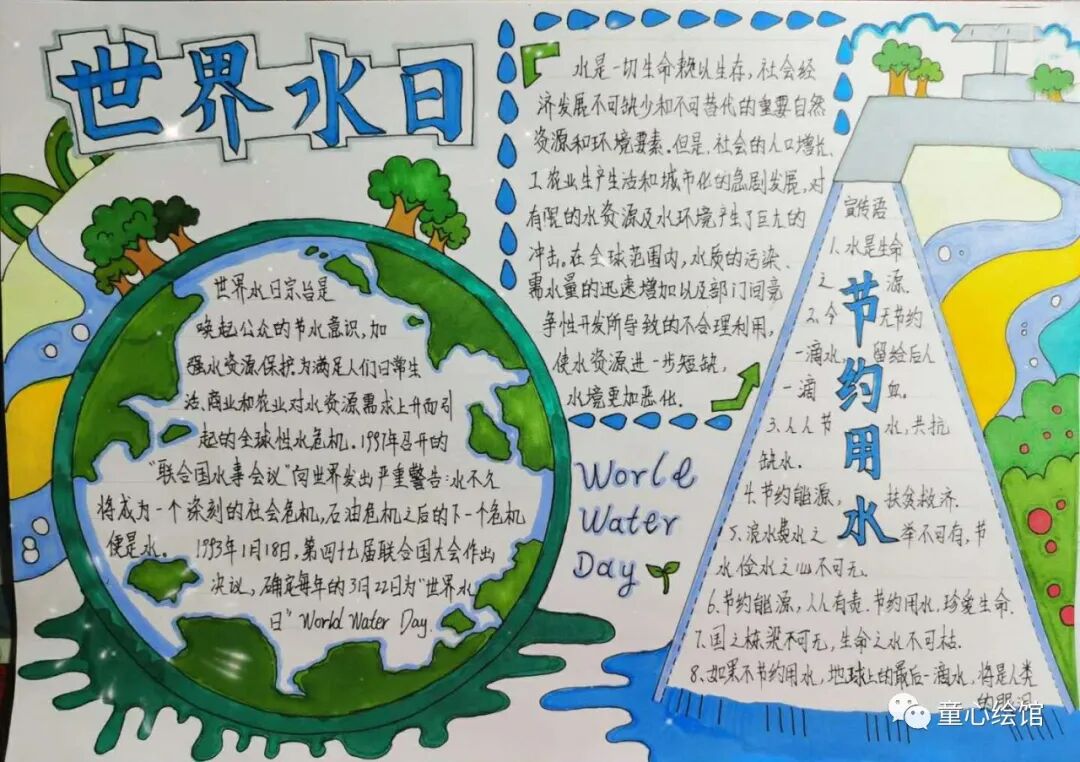 世界水日
世界水日宗旨是
唤起公众的节水意识,加
强水资源保护为满足人们日常生
活、商业和农业对水资源需求上升而引
起的全球性水危机.1997年召开的
“联合国水事会议”向世界发出严重警告:水不久
将成为一个深刻的社会危机,石油危机之后的下一个危机
便是水。 1993年1月18日,第四十七届联合国大会作出
决议,确定每年的3月22日为“世界水
日”World Water Day.
水是一切生命赖以生存,社会经
济发展不可缺少和不可替代的重要自然
资源和环境要素.但是,社会的人口增长、
工农业生产生活和城市化的急剧发展,对
有限的水资源及水环境产生了巨大的
冲击。在全球范围内,水质的污染、
需水量的迅速增加以及部门间竞
争性开发所导致的不合理利用,
使水资源进一步短缺,
水境更加恶化.
World
Water
Day
节约用水
宣传语
1.水是生命
之 源.
2.今 无节约
一滴水, 留给后人
一滴 血.
3.人人节 水,共抗
缺水.
4.节约能源, 扶贫救济.
5.浪水费水之 举不可有,节
水俭水之心不可无.
6.节约能源,人人有责.节约用水,珍爱生命.
7.国之栋梁不可无,生命之水不可枯.
8.如果不节约用水,地球上的最后一滴水,将是人类
的眼泪
童心绘馆